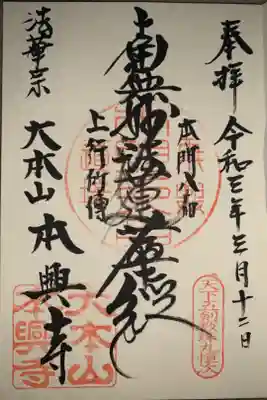 奉拝
令和三年三月十二日
本門八品
南無妙法蓮華経
上行所傳
法華宗
大本山 本興寺
大本山
本興寺